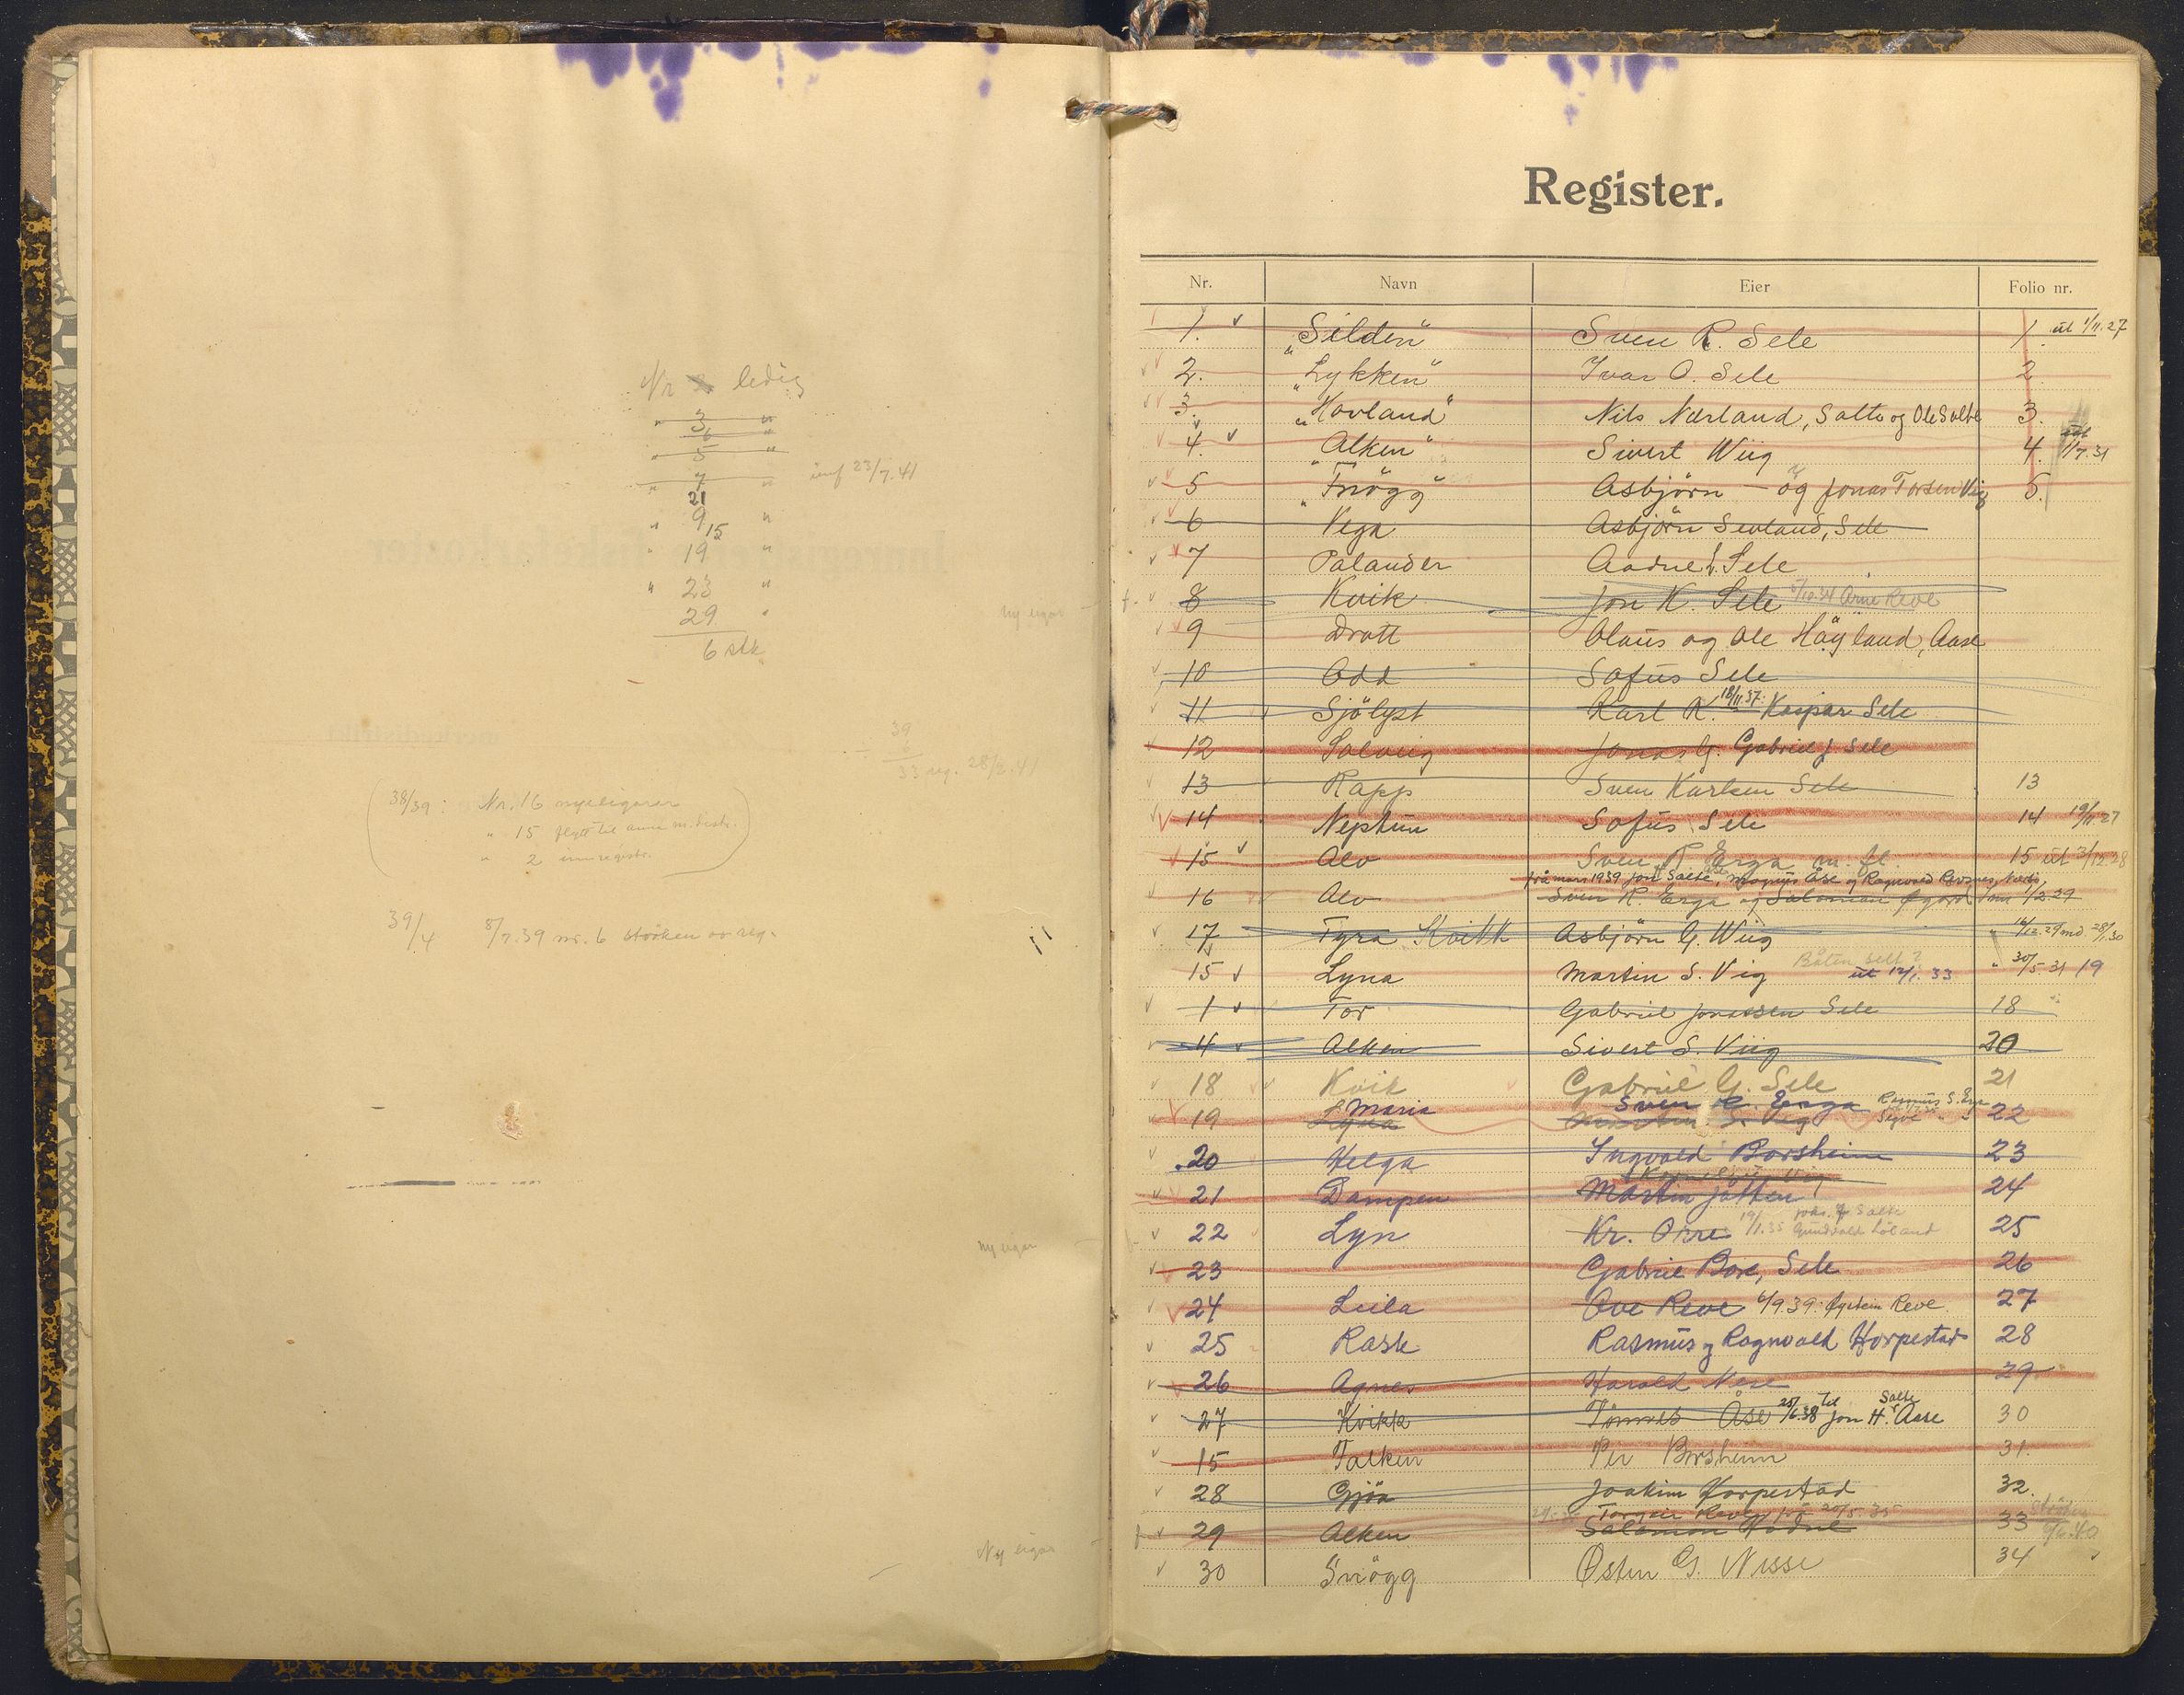 Nr ledig
" 3 "
6 "
" 5 "
" 7 " inf 23/7.41
21
" 9 "
15
" 19 "
" 23 "
29 "
6 stk
39
6
33 reg. 28/2.41
38/39: Nr. 16 nye eigarar
" 15 flytt til anna m.distr.
" 2 innregistr.
39/4 8/7.39 nr. 6 stroken av reg.
Ny eigar
Ny eigar
Ny eigar
Register.
Nr. Navn Eier Folio nr.
1. "Silden" Sven R. Sele 1. ut 1/11.27
2. "Lykken" Ivar O. Sele 2
3. "Havland" Nils Nærland, Salte og Ole Salte 3.
4. "Alken" Sivert Wiig 4. ut 1/7.31
5 "Snögg" Asbjörn og Jonas Torsen Viig 5.
6 Vega Asbjörn Sevland, Sele
7 Palander Aadne L. Sele
8 Kvik Jon K. Sele 5/10.34 Arne Reve
9 Drott Olaus og Ole Höyland, Aase
10 Odd Sofus Sele
11 Sjölyst Karl K. 18/11.37: Kaspar Sele
12 Solveig Jonas G. Gabriel J. Sele
13 Rapp Sven Karlsen Sele 13
14 Neptun Sofus Sele 14 19/11.27
15 Alv Sven R. Erga m. fl. 15 ut 31/12.28
frå mars 1939 Jon Salte, Magnus Åse og Ragnvald Revsnes, Nærbø
16 Alv Sven R. Erga og Salomon Øgård 1/2.29
17 Tyra Kvikk Asbjörn G. Wiig " 16/12.29 28/1.30
15 Lyna Martin S. Vig Båten selt? ut 12/1.33 " 30/5 31 19
1 Tor Gabriel Jonassen Sele 18
4 Alken Sivert S. Viig 20
18 Kvik Gabriel G. Sele 21
19 Lyna Maria Sven R. Erga Rasmus S. Erga 22
20 Helga Ingvald Borsheim 23
21 Dampen Martin Jåtten 24
22 Lyn Kr. Orre 19/1.35 Gunnvald Löland 25
23 Gabriel Bore, Sele 26
24 Leila Ove Reve 6/9.39: Øystein Reve. 27
25 Rask Rasmus og Ragnvald Horpestad 28
26 Agnes Harald Nese 29.
27 Kvikk Tönnes Åse 25/6.38 til Jon H. Salte Åsse 30
15 Falken Per Borsheim 31.
28 Gjöa Joakim Horpestad 32.
29 Alken Salomon Hodne 20/5.35 33
30 Snögg Østen G. Nesse 34